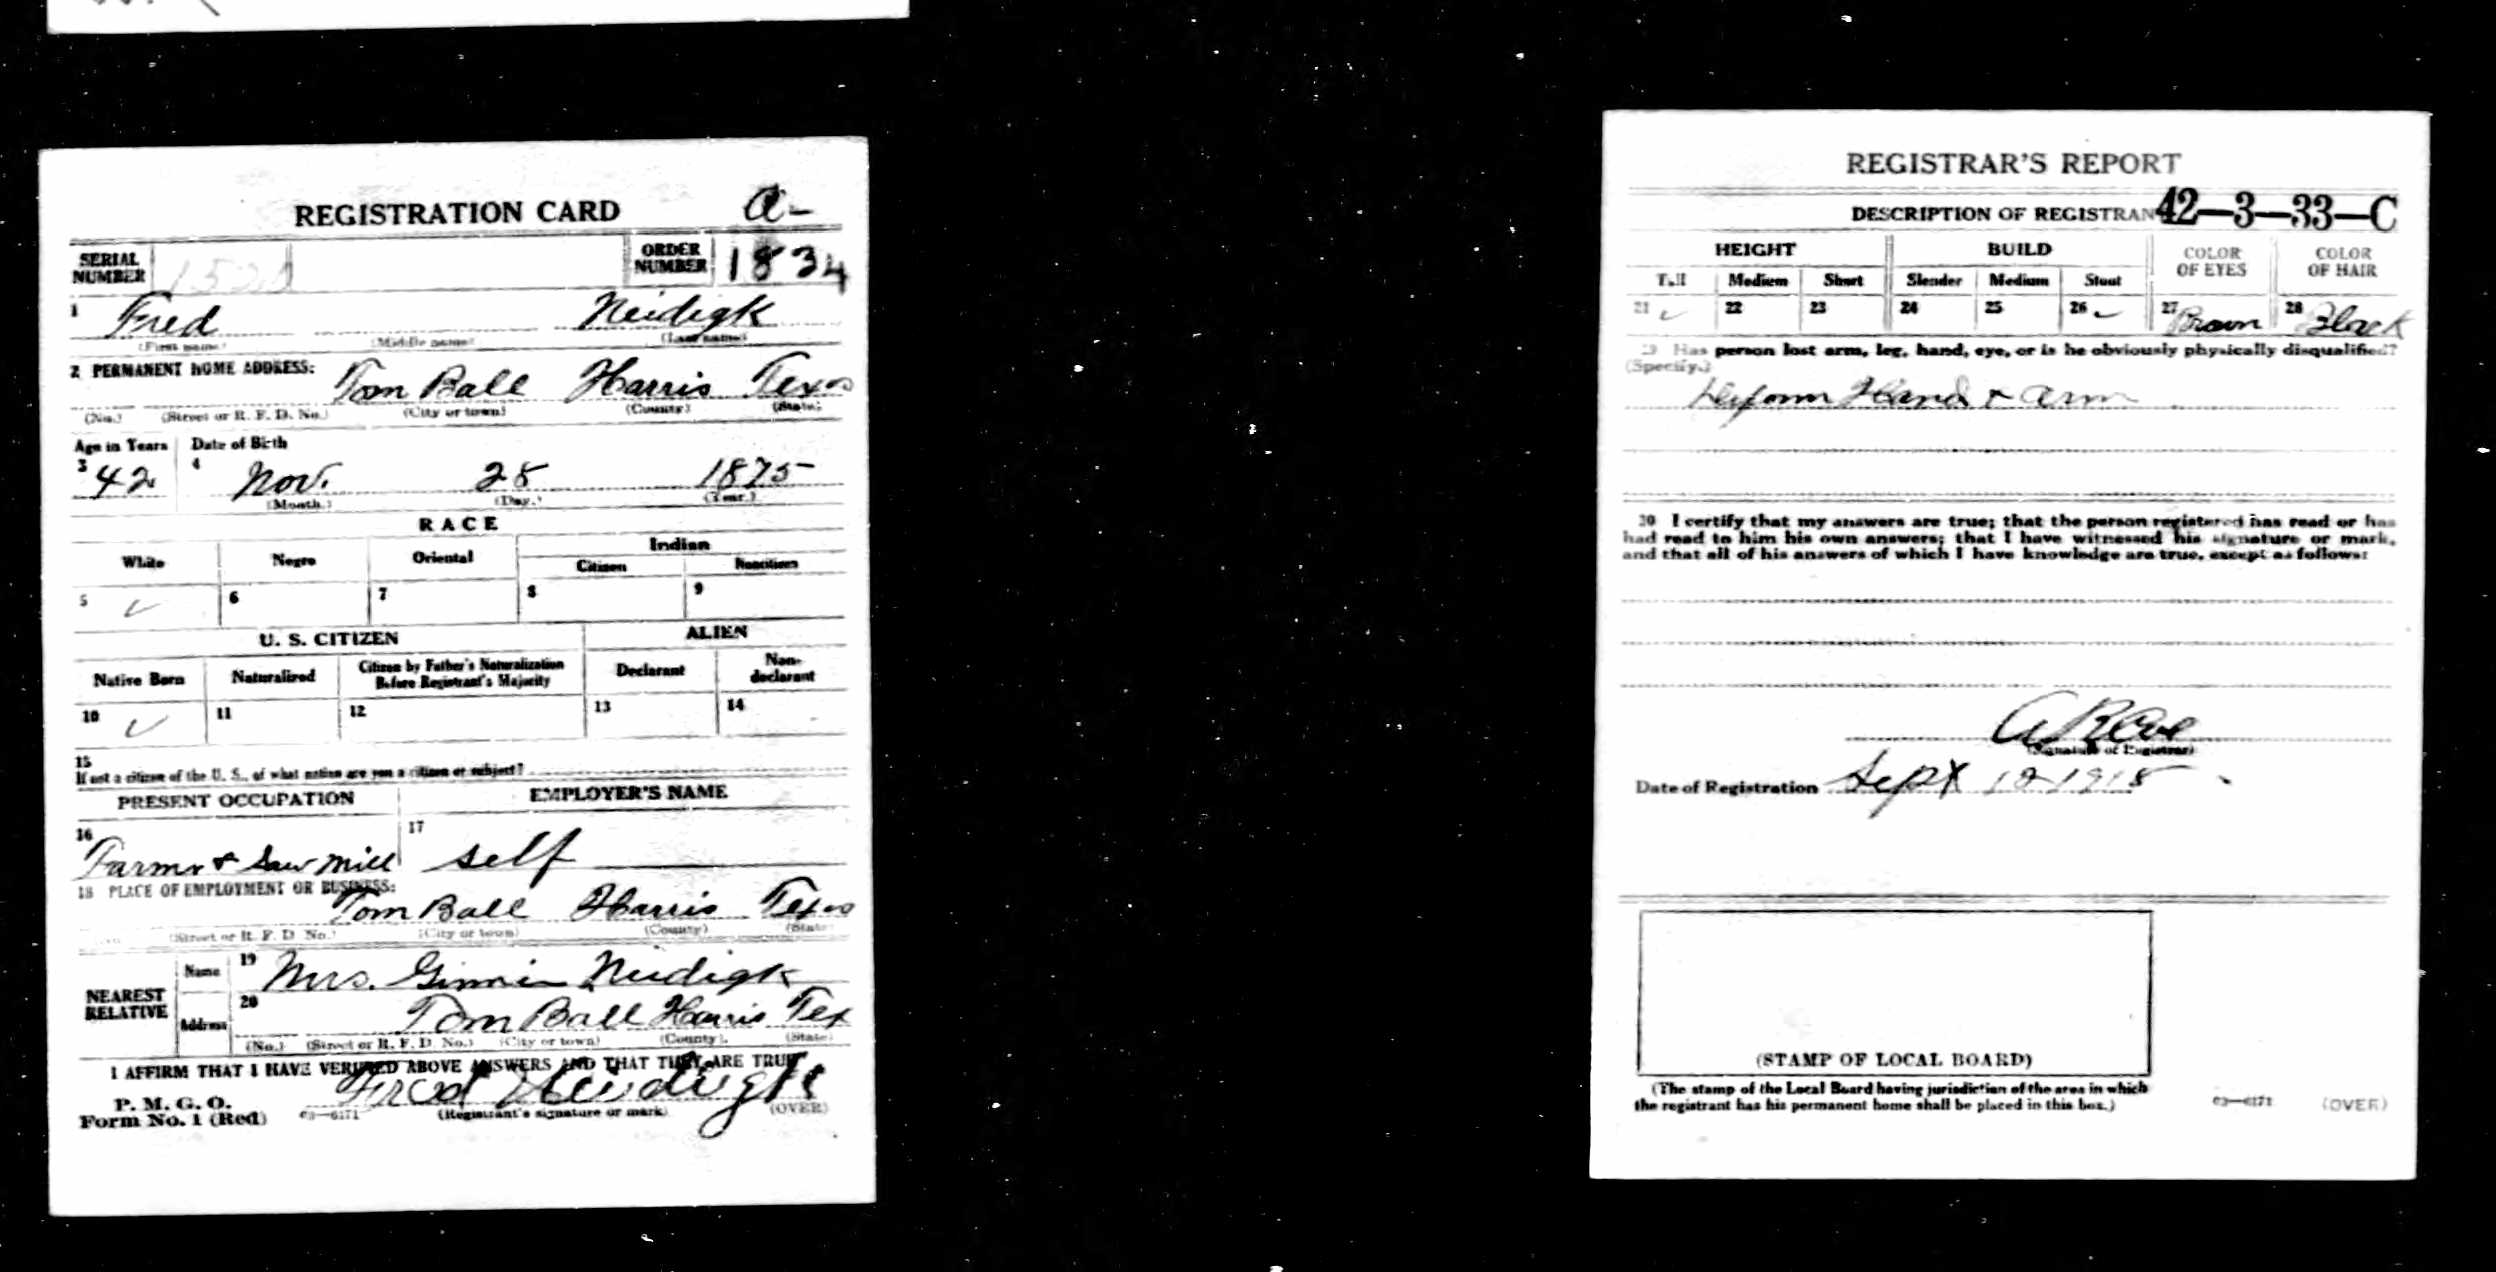 REGISTRATION CARD a-
SERIAL NUMBER ORDER NUMBER 1834
1 Fred Neidigk
(First name) (Middle name) (Last name)
2 PERMANENT HOME ADDRESS: Tom Ball Harris Texas
(No.) (Street or R. F. D. No.) (City or town) (County) (State)
Age in Years Date of Birth
3 42 4 Nov. 28 1875
(Month.) (Day.) (Year.)
RACE
White Negro Oriental Indian
Citizen Noncitizen
5 ✓ 6 7 8 9
U. S. CITIZEN ALIEN
Native Born Naturalized Citizen by Father's Naturalization Before Registrant's Majority Declarant Non-declarant
10 ✓ 11 12 13 14
15
If not a citizen of the U. S., of what nation are you a citizen or subject?
PRESENT OCCUPATION EMPLOYER'S NAME
16 Farmr & Saw mill 17 self
18 PLACE OF EMPLOYMENT OR BUSINESS:
Tom Ball Harris Texas
(Street or R. F. D. No.) (City or town) (County) (State)
NEAREST RELATIVE
Name 19 Mrs. Ginnie Neidigk
Address 20 Tom Ball Harris Tex
(No.) (Street or R. F. D. No.) (City or town) (County) (State)
I AFFIRM THAT I HAVE VERIFIED ABOVE ANSWERS AND THAT THEY ARE TRUE
P. M. G. O.
Form No. 1 (Red) 03—6171 Fred Neidigk
(Registrant's signature or mark) (OVER)
REGISTRAR'S REPORT
DESCRIPTION OF REGISTRAN 42-3-33-C
HEIGHT BUILD COLOR OF EYES COLOR OF HAIR
Tall Medium Short Slender Medium Stout
21 ✓ 22 23 24 25 26 ✓ 27 Brown 28 Black
29 Has person lost arm, leg, hand, eye, or is he obviously physically disqualified?
(Specify.)
Deform Hand & arm
30 I certify that my answers are true; that the person registered has read or has
had read to him his own answers; that I have witnessed his signature or mark,
and that all of his answers of which I have knowledge are true, except as follows:
(Signature of Registrar)
Date of Registration Sept 12 1918
(STAMP OF LOCAL BOARD)
(The stamp of the Local Board having jurisdiction of the area in which
the registrant has his permanent home shall be placed in this box.)
03—6171 (OVER)